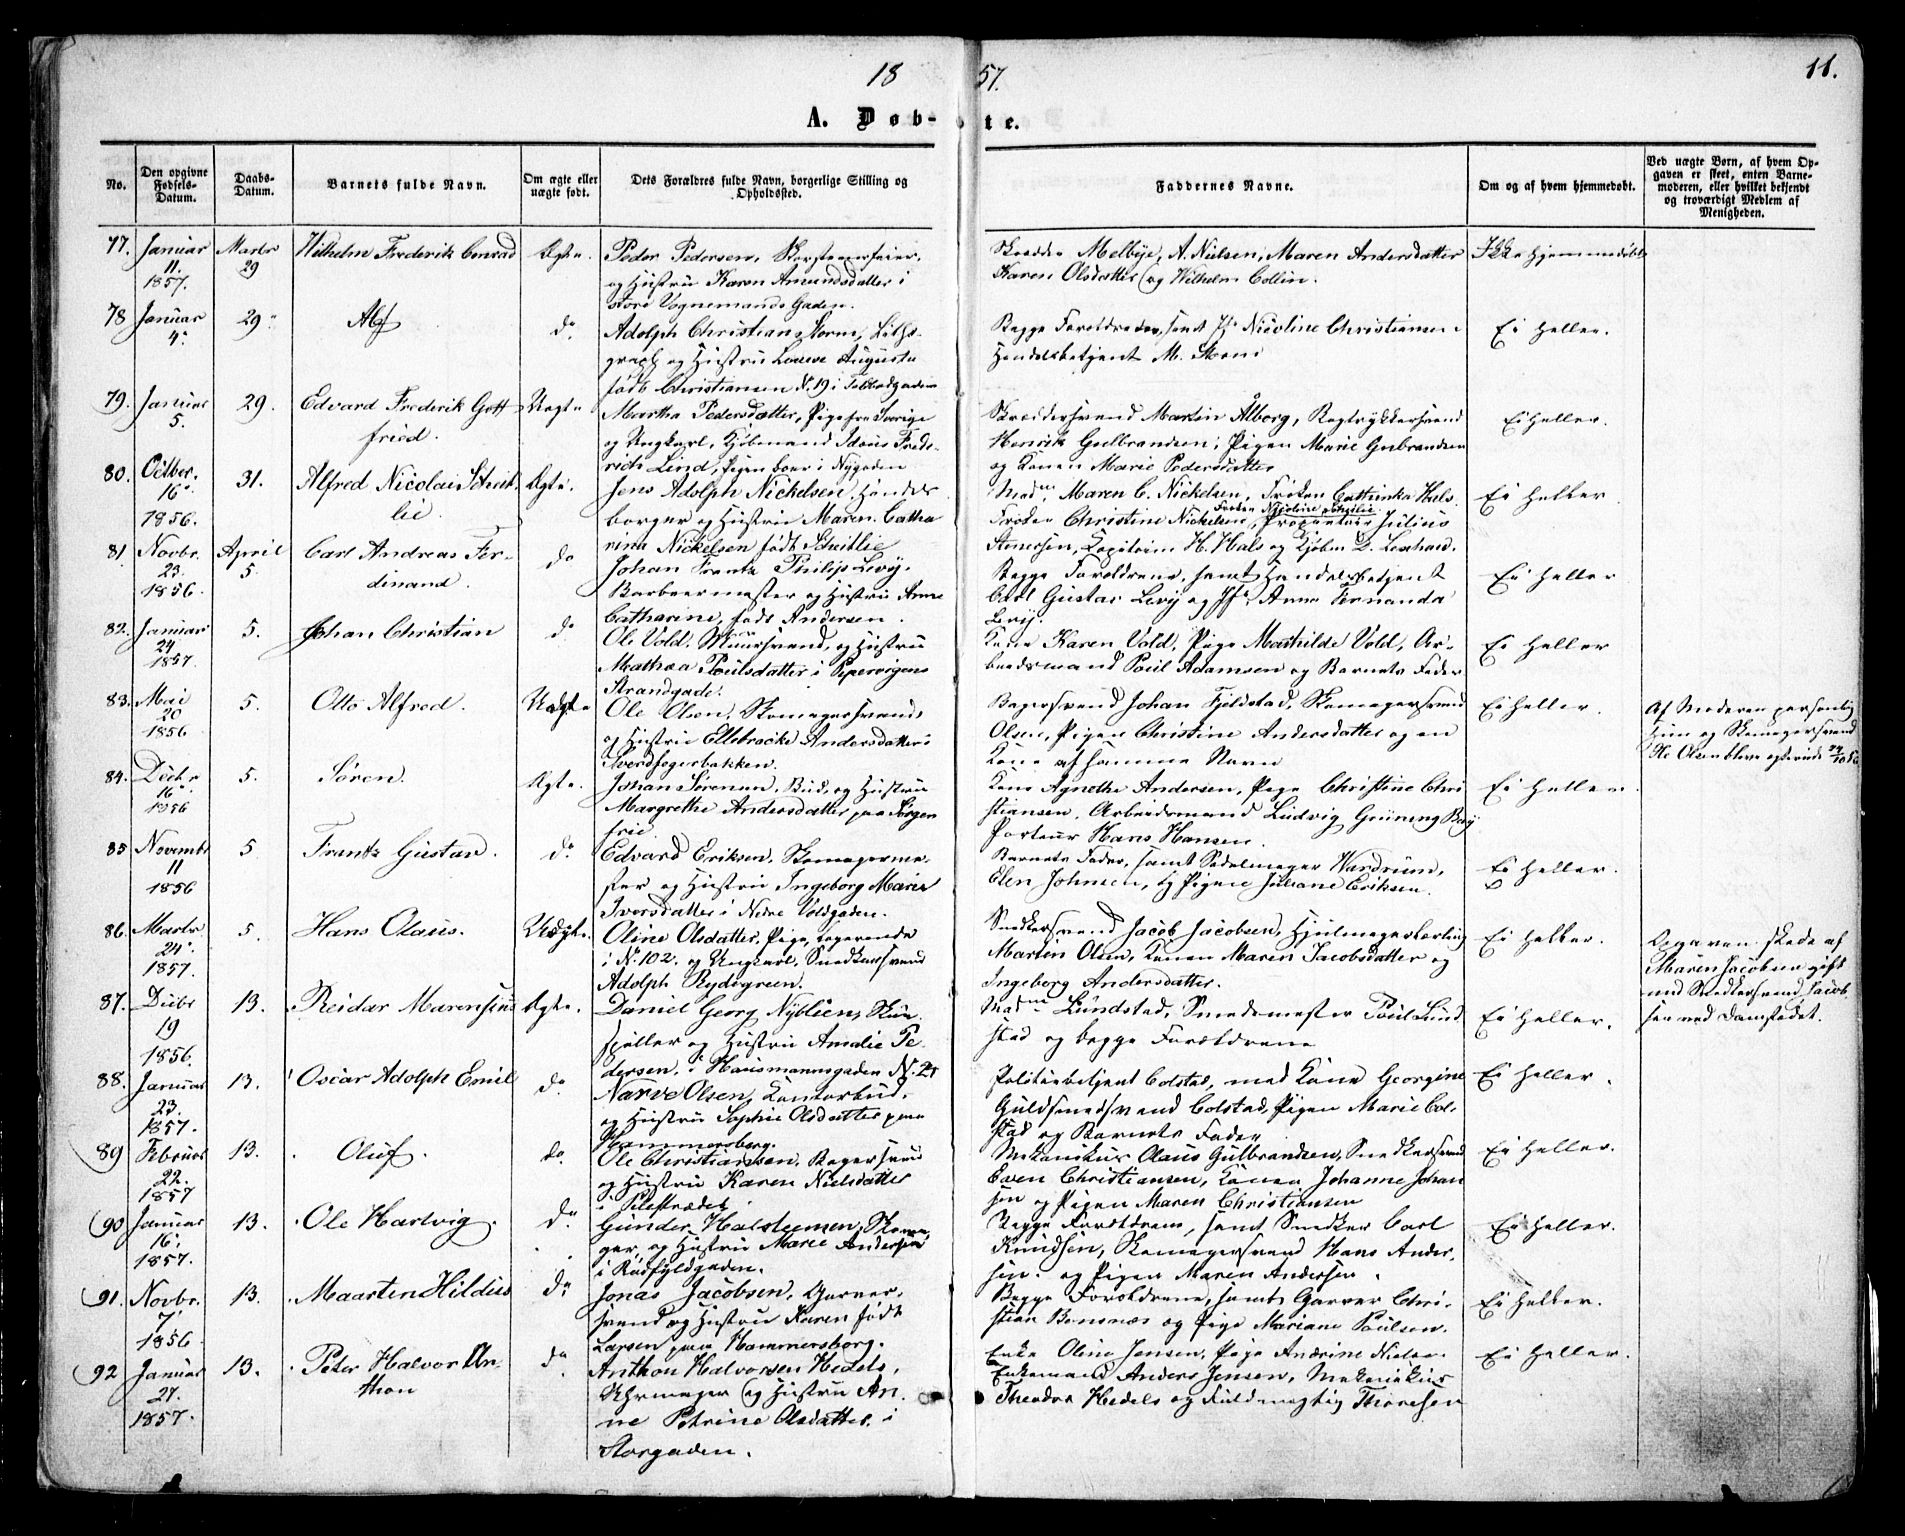 18 57.
11.
A. Døb- te.
No.
Den opgivne Fødsels-Datum.
Daabs-Datum.
Barnets fulde Navn.
Om ægte eller uægte født.
Dets Forældres fulde Navn, borgerlige Stilling og Opholdssted.
Faddernes Navne.
Om og af hvem hjemmedøbt.
Ved uægte Børn, af hvem Opgaven er skeet, enten Barnemoderen, eller hvilket bekjendt og troværdigt Medlem af Menigheden.
77. Januar 11. 1857. Marts 29 Wilhelm Frederik Conrad Ægte.
Peder Pedersen, Skorsteensfeier,
og Hustru Karen Amundsdatter i
store Vognemands Gaden.
Melbye, A. Nielsen, Maren Andersdatter
Karen Olsdatter og Wilhelm Collin.
Ikke hjemmedøbt
78 Januar 4. 29. Alf do
Adolph Christian Storm, Litho-
graph og Hustru Augusta
født Christiansen N. 19 i Toldbodgaden
Begge Forældrene, samt Jfr Nicoline Christiansen
Handelsbetjent M. Storm
Ei heller.
79. Januar 5. 29. Edvard Frederik Gott
fried. Uægte
Martha Pedersdatter, Pige fra Sverige
og Ungkarl, Kjøbmand Frede-
rich Lind, Pigen boer i Nygaden
Skræddersvend Martin Ålborg, Bogtrykkersvend
Henrik Gulbrandsen, Pigen Marie Gulbrandsen
og Konen Marie Pedersdatter
Ei heller.
80. Octber. 16. 1856. 31. Alfred Nicolai Scheit-
lie. Ægte.
Jens Adolph Nickelsen Handels
borger og Hustru Maren Catha
rina Nickelsen født Scheitlie
Madm. Maren C. Nickelsen, Frøken Cathinka Hals
Frøken Christine Nickelsen, Proprietair Julius
Kapitain H. Hals og Kjøbm
Ei heller
81 Novbr. 23. 1856. April 5. Carl Andreas Fer-
dinand. do
Johan Frantz Philip Levy,
Barbeermester og Hustru Anne
Catharine, født Andersen.
Begge Forældrene, samt Handelsbetjent
Carl Gustav Levy og Jfr Anna Fernanda
Levy.
Ei heller
82. Januar 24 1857. 5. Johan Christian do
Ole Vold, Muursvend, og Hustru
Mathea Poulsdatter i Pipervigens
Strandgade.
Kone Karen Vold, Pige Mathilde Vold, Ar-
beidsmand Poul Adamsen og Barnets Fader
Ei heller
83. Mai 20 1856 5. Otto Alfred. Uægte
Ole Olsen, Skomagersvend
og Hustru Andersdatter i
Sværdfegerbakken.
Bagersvend Johan Fjeldstad, Skomagersvend
Olsen, Pigen Christine Andersdatter og en
Kone af samme Navn
Ei heller.
Af Moderen personlig
Hun og Skomagersvend
Ole Olsen bleve
84. Decbr 16. 1856 5. Søren. Ægte.
Johan Sørensen, Bud, og Hustru
Margrethe Andersdatter paa Sorgen
frie.
Kone Agnethe Andersen, Pige Christine Chri
stiansen, Arbeidsmand Ludvig Grüning
Porteur Hans Hansen.
Ei heller.
85 Novembr 11 1856 5 Frantz Gustav. do
Edvard Eriksen, Skomagerme-
ster og Hustru Ingeborg Marie
Iversdatter i Nedre Voldgaden.
Barnets Fader, samt Sadelmager Wardrum,
Elen Johnsen, og Pigen Juliane Eriksen.
Ei heller.
86. Marts 24. 1857. 5. Hans Olaus. Uægte.
Oline Olsdatter, Pige, logerende
i N. 102. og Ungkarl, Snedkersvend
Adolph Rydegreen.
Snedkersvend Jacob Jacobsen, Hjulmagerlærling
Martin Olsen, Konen Maren Jacobsdatter og
Ingeborg Andersdatter.
Ei heller.
Opgaven skede af
Maren Jacobsen gift
med Snedkersvend Jacob
sen ved Damstedet.
87. Decbr 19 1856. 13. Reidar Marensius Ægte.
Daniel Georg Nyblien, Skue
spiller og Hustru Amalie Pe-
dersen, i Hausmannsgaden N. 21
Madm Lundstad, Smedemester Poul Lund
stad og begge Forældrene
Ei heller.
88. Januar 23. 1857. 13. Oscar Adolph Emil do
Narve Olsen, Kontorbud,
og Hustru Sophie Olsdatter paa
Hammersborg.
Politibetjent Colstad, med Kone Georgine
Guldsmedsvend Colstad, Pigen Marie Col-
stad og Barnets Fader
Ei heller.
89 Februar 22. 1857 13. Oluf. do
Ole Christianssen, Bagersvend
og Hustru Karen Nielsdatter
i Pilestrædet
Mekanikus Olaus Gulbrandsen, Snedkersvend
Even Christiansen, Konen Johanne Johan
sen og Pigen Maren Christiansen
Ei heller.
90 Januar 16. 1857. 13. Ole Hartvig. do
Gunder Halsteensen, Skoma-
ger, og Hustru Marie Andersen
i Rødfyldgaden.
Begge Forældrene, samt Snedker Carl
Knudsen, Skomagersvend Hans Ander-
sen. og Pigen Maren Andersen.
Ei heller.
91. Novbr. 7. 1856 13. Maarten Hildus do
Jonas Jacobsen, Garver-
svend og Hustru Karen født
Larsen paa Hammersborg.
Begge Forældrene, samt Garver Chri-
stian Bonsnæs og Pige Mariane Poulsen.
Ei heller.
92 Januar 27. 1857. 13. Peter Halvor An-
thon do
Anthon Halvorsen Hedels,
Uhrmager og Hustru An-
ne Petrine Olsdatter, i
Storgaden.
Enke Oline Jensen, Pige Andrine Nielsen
Enkemand Anders Jensen, Mekanikus
Theodor Hedels og Fuldmægtig Thoresen
Ei heller.